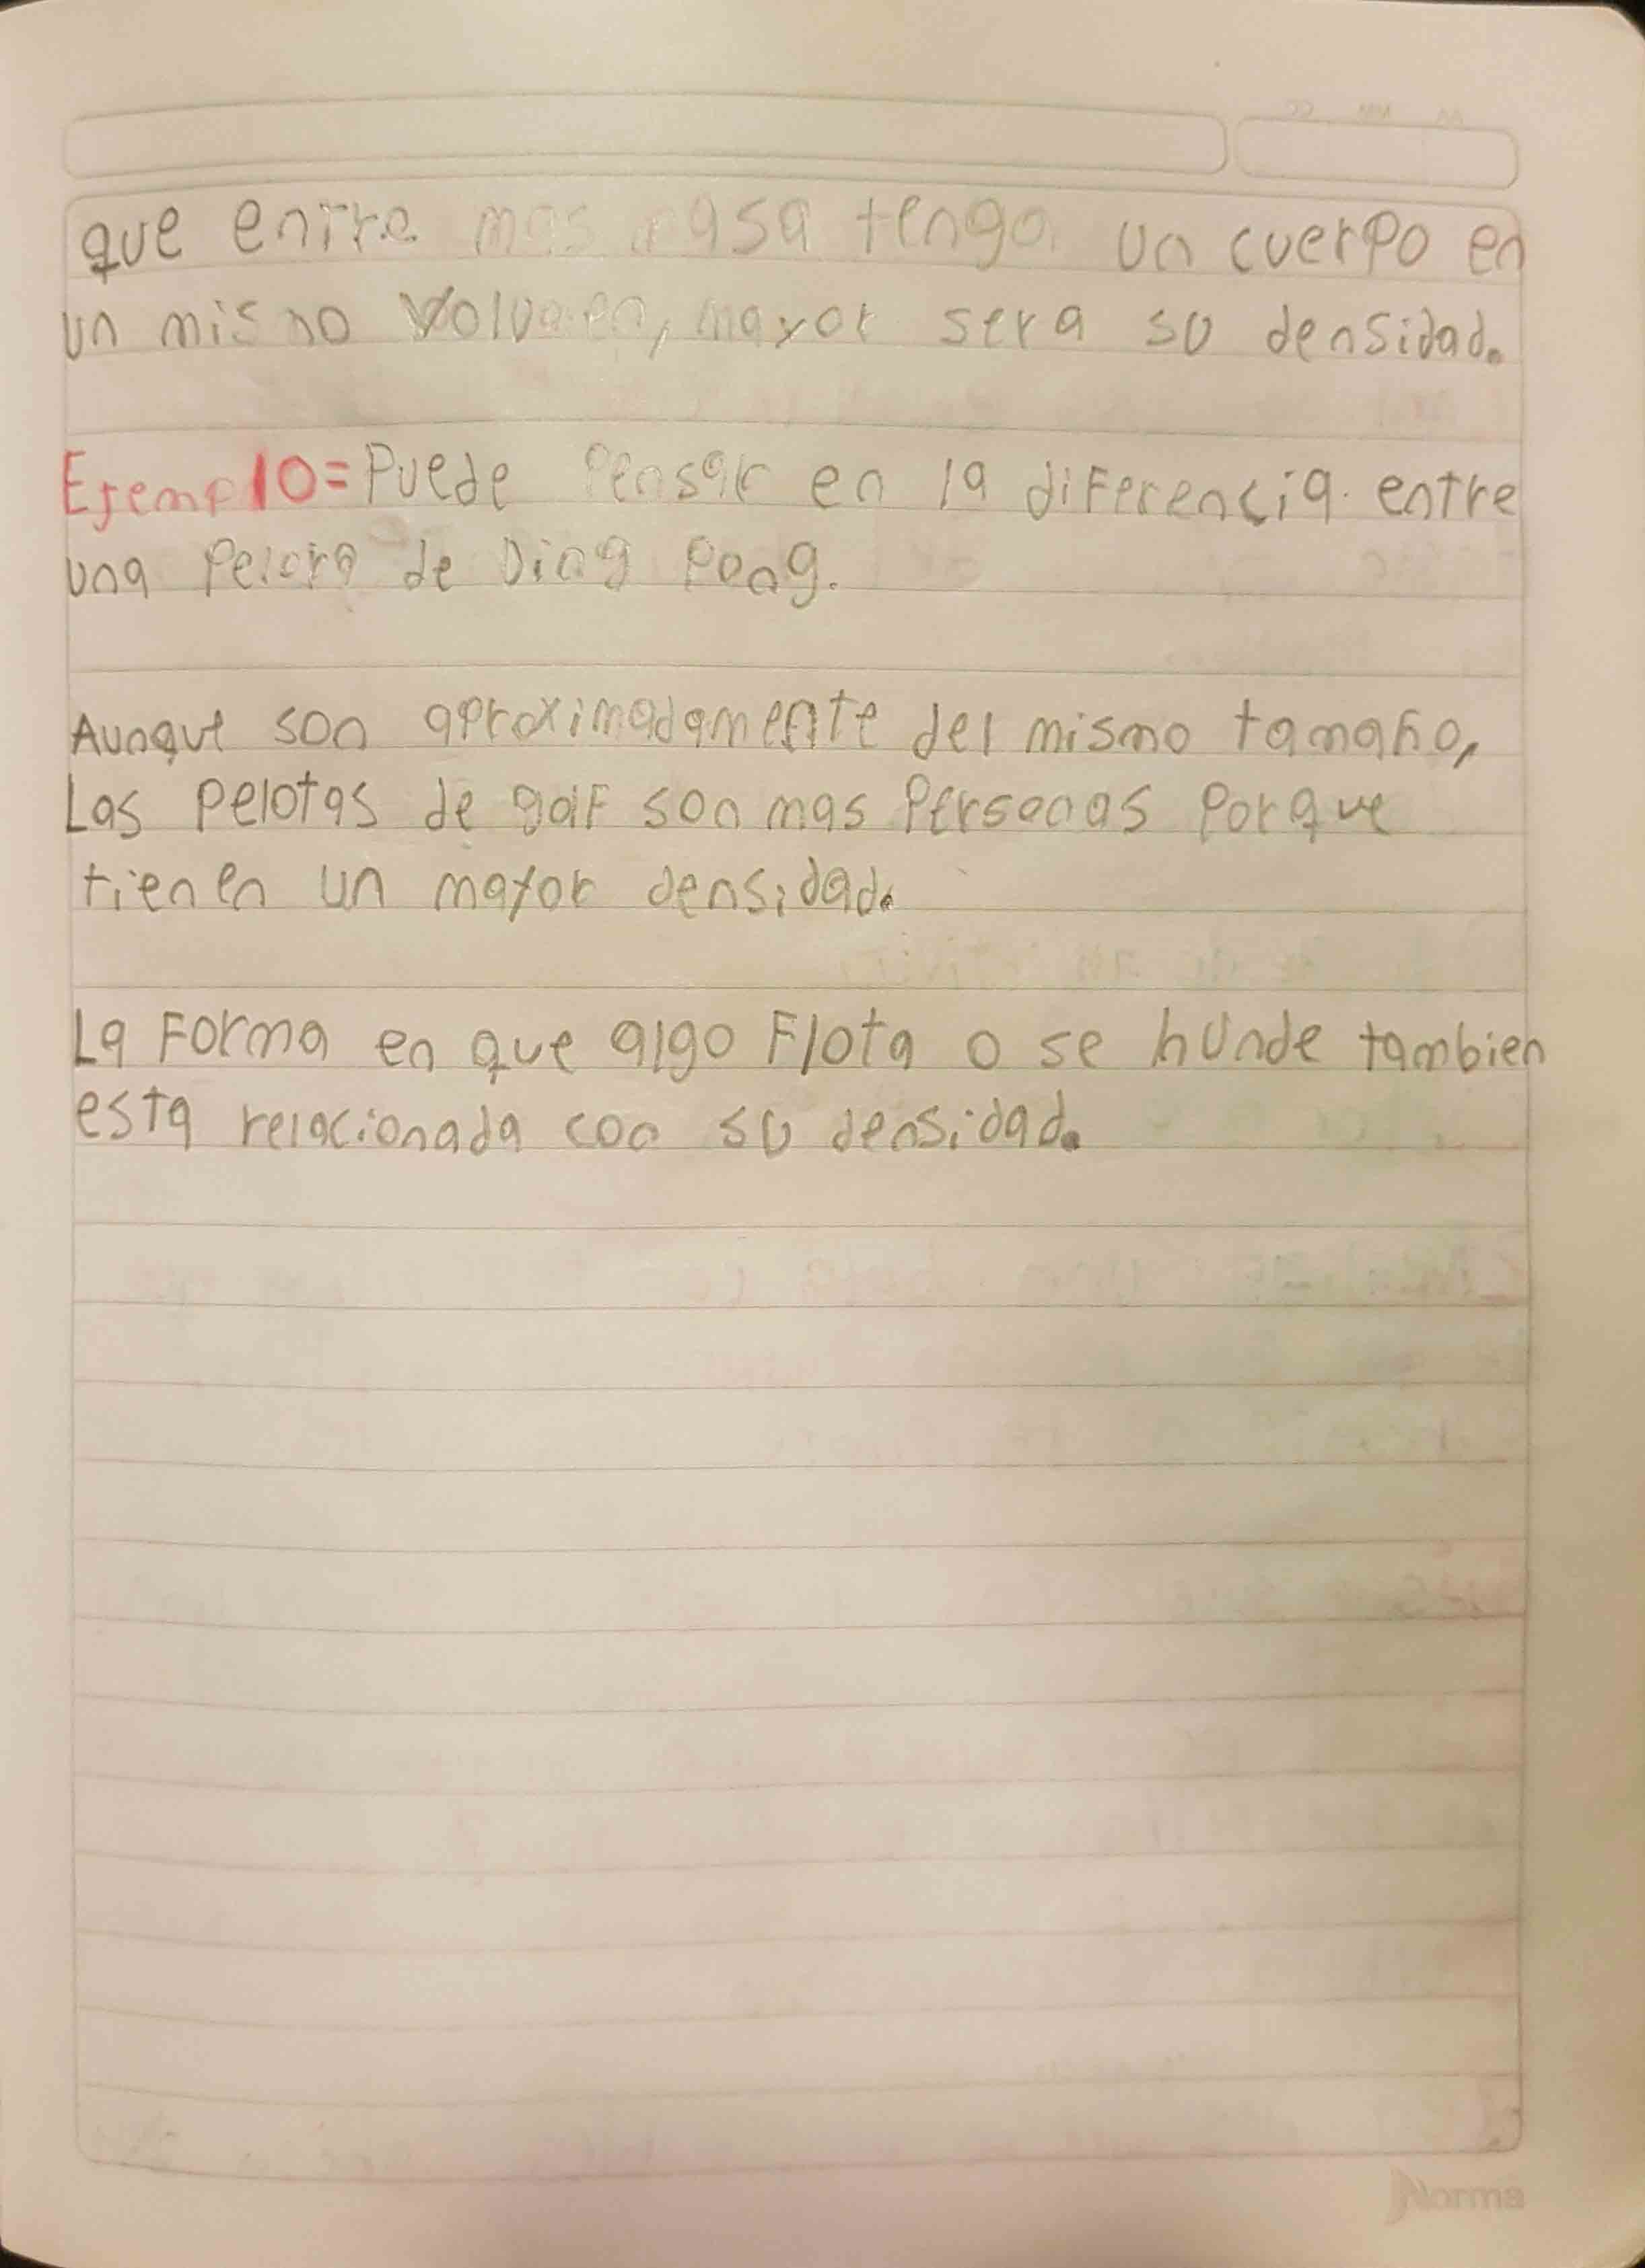 que entre mas masa tenga un cuerpo en
un mismo volumen, mayor sera su densidad.
Ejemplo= Puede Pensar en la diferencia entre
una Pelota de Ding Pong.
Aunque son aproximadamente del mismo tamaño,
Las pelotas de golf son mas Personas Porque
tienen un mayor densidad.
La Forma en que algo Flota o se hunde tambien
esta relacionada con su densidad.
Norma